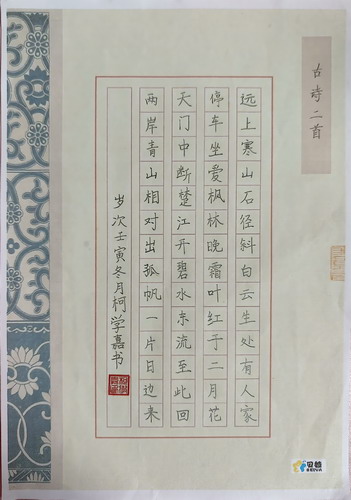 古诗二首
远上寒山石径斜白云生处有人家
停车坐爱枫林晚霜叶红于二月花
天门中断楚江开碧水东流至此回
两岸青山相对出孤帆一片日边来
岁次壬寅冬月柯学嘉书
贝顿